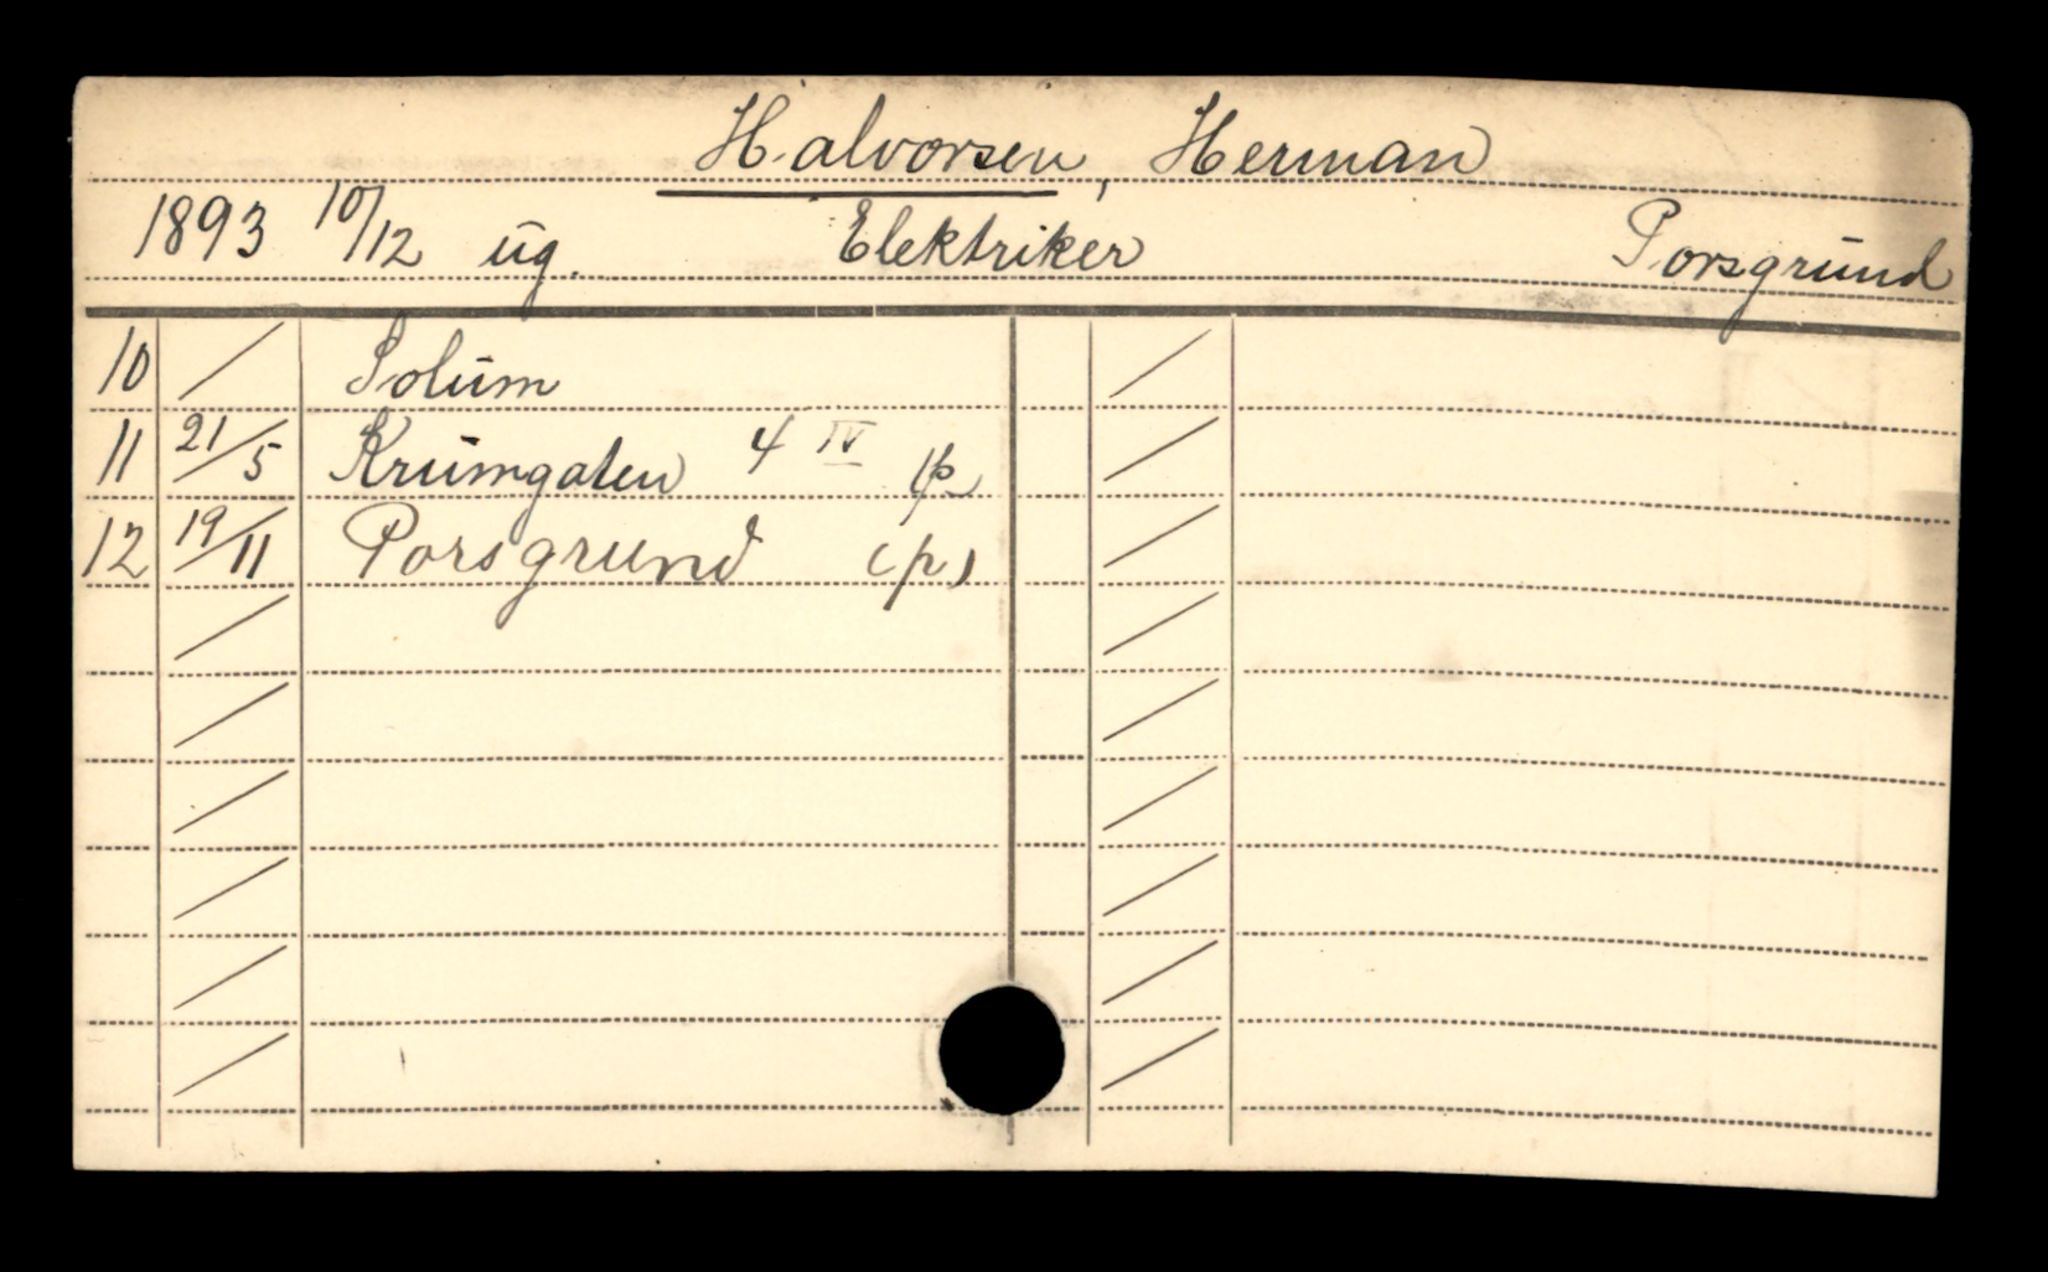 Halvorsen, Herman
1893 10/12 ug. Elektriker Porsgrund
10 / Solum
11 21/5 Krumgaten 4 IV (p
12 19/11 Porsgrund (p)